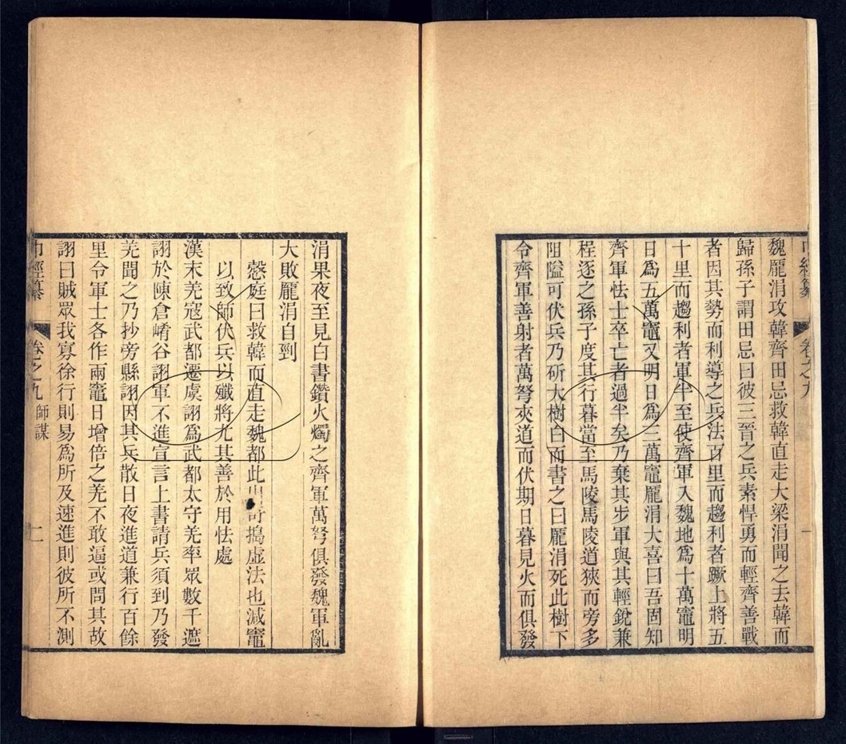 魏龎涓攻韓齊田忌救韓直走大梁涓聞之去韓而
歸孫子謂田忌曰彼三晉之兵素悍勇而輕齊善戰
者因其勢而利導之兵法百里而趨利者蹶上將五
十里而趨利者軍半至使齊軍入魏地爲十萬竈明
日爲五萬竈又明日爲三萬竈龎涓大喜曰吾固知
齊軍怯士卒亡者過半矣乃棄其步軍與其輕銳兼
程逐之孫子度其行暮當至馬陵馬陵道狹而旁多
阻隘可伏兵乃斫大樹白而書之曰龎涓死此樹下
令齊軍善射者萬弩夾道而伏期日暮見火而俱發
卷之九
涓果夜至見白書鑽火燭之齊軍萬弩俱發魏軍亂
大敗龎涓自刭
愨庭曰救韓而直走魏都此出奇搗虛法也減竈
以致師伏兵以殲將尤其善於用怯處
漢末羌寇武都遷虞詡爲武都太守羌率眾數千遮
詡於陳倉崤谷詡軍不進宣言上書請兵須到乃發
羌聞之乃抄旁縣詡因其兵散日夜進道兼行百餘
里令軍士各作兩竈日增倍之羌不敢逼或問其故
詡曰賊眾我寡徐行則易爲所及速進則彼所不測
卷之九 師謀